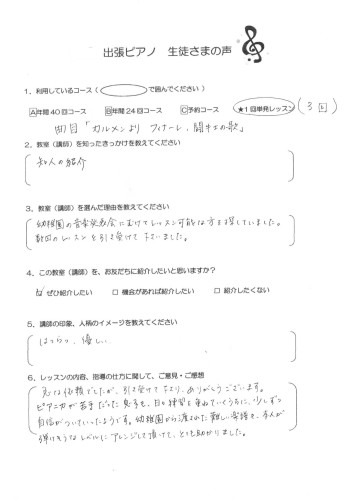 出張ピアノ 生徒さまの声
1、利用しているコース（ で囲んでください）
A年間40回コース B年間24回コース C予約コース ★1回単発レッスン（3回）
曲目「カルメンより フィナーレ、闘牛士の歌」
2、教室（講師）を知ったきっかけを教えてください
知人の紹介
3、教室（講師）を選んだ理由を教えてください
幼稚園の音楽発表会にむけてレッスン可能な方を探していました。
数回のレッスンを引き受けて下さいました。
4、この教室（講師）を、お友だちに紹介したいと思いますか？
☑ ぜひ紹介したい □ 機会があれば紹介したい □ 紹介したくない
5、講師の印象、人柄のイメージを教えてください
はつらつ、優しい
6、レッスンの内容、指導の仕方に関して、ご意見・ご感想
急な依頼でしたが、引き受けて下さり、ありがとうございます。
ピアニカが苦手だった息子も、日々練習を重ねていくうちに、少しずつ
自信がついていったようです。幼稚園から渡された難しい楽譜を、本人が
弾けそうなレベルにアレンジして頂けて、とても助かりました。